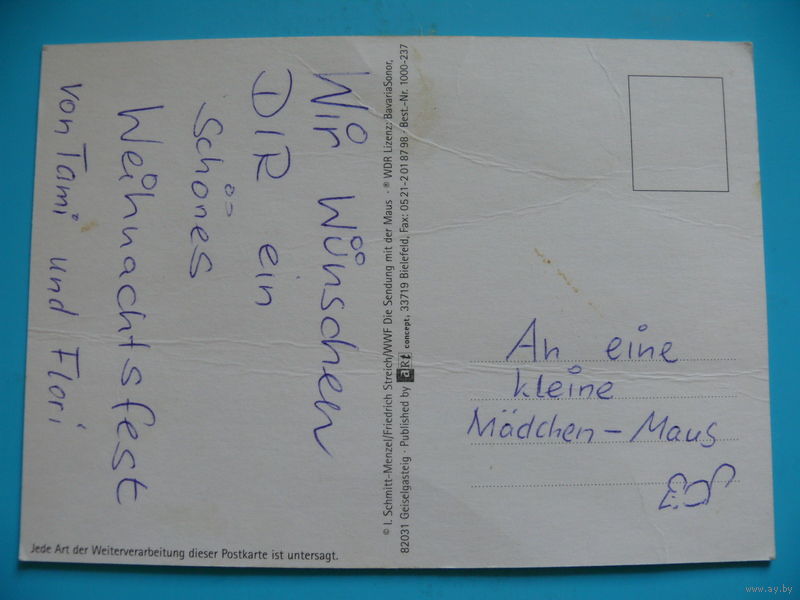 Wir wünschen
DIR ein
schönes
Weihnachtsfest
von Tami und Flori
© I. Schmitt-Menzel/Friedrich Streich/WWF Die Sendung mit der Maus · ® WDR Lizenz: BavariaSonor,
82031 Geiselgasteig · Published by art concept, 33719 Bielefeld, Fax: 05 21-2 01 87 98 · Best.-Nr. 1000-237
An eine
kleine
Mädchen-Maus
Jede Art der Weiterverarbeitung dieser Postkarte ist untersagt.
www.ay.by